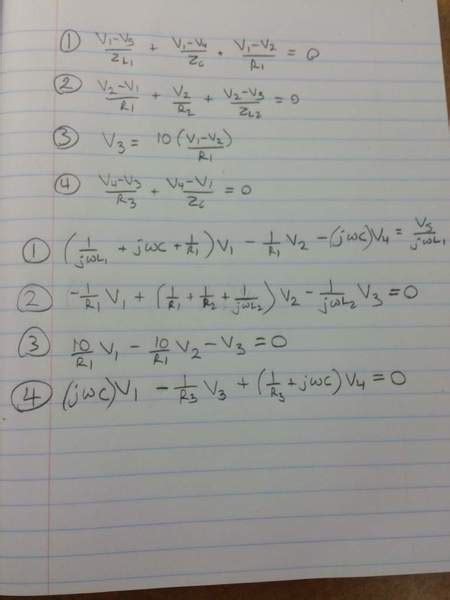 ① (V₁-V₅)/Z_L1 + (V₁-V₄)/Z_c + (V₁-V₂)/R₁ = 0
② (V₂-V₁)/R₁ + V₂/R₂ + (V₂-V₃)/Z_L2 = 0
③ V₃ = 10 ((V₁-V₂)/R₁)
④ (V₄-V₃)/R₃ + (V₄-V₁)/Z_c = 0
① (1/jωL₁ + jωC + 1/R₁) V₁ - 1/R₁ V₂ - (jωC)V₄ = V₅/jωL₁
② -1/R₁ V₁ + (1/R₁ + 1/R₂ + 1/jωL₂) V₂ - 1/jωL₂ V₃ = 0
③ 10/R₁ V₁ - 10/R₁ V₂ - V₃ = 0
④ (jωC)V₁ - 1/R₃ V₃ + (1/R₃ + jωC) V₄ = 0